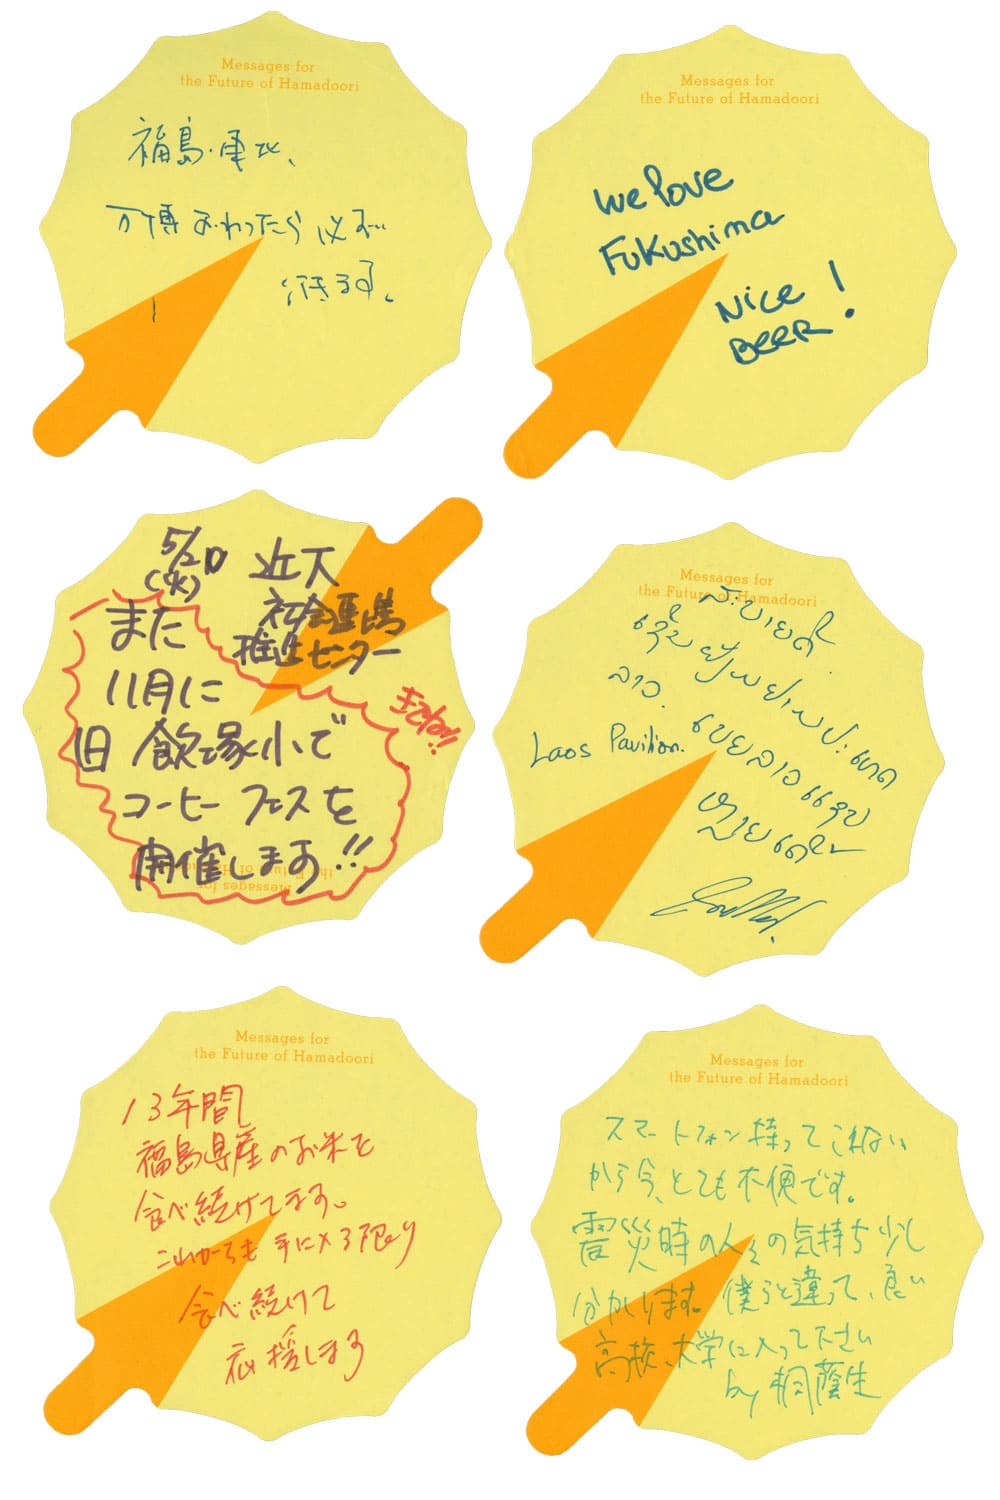 Messages for
the Future of Hamadoori
福島・東北、
万博おわったら必ず
行きます。
Messages for
the Future of Hamadoori
We love
Fukushima
Nice
BEER!
5/20
(火)
近大
社会連携
推進センター
また
11月に
旧飯塚小で
コーヒーフェスを
開催します!!
きてね!!
Messages for
the Future of Hamadoori
Messages for
the Future of Hamadoori
ສະບາຍດີ
ລາວ.
Laos Pavilion.
Messages for
the Future of Hamadoori
13年間
福島県産のお米を
食べ続けてます。
これからも手に入る限り
食べ続けて
応援します
Messages for
the Future of Hamadoori
スマートフォン持ってこれない
から今、とても不便です。
震災時の人々の気持ち少し
分かります。僕らと違って、良い
高校、大学に入って下さい
by 桐蔭生